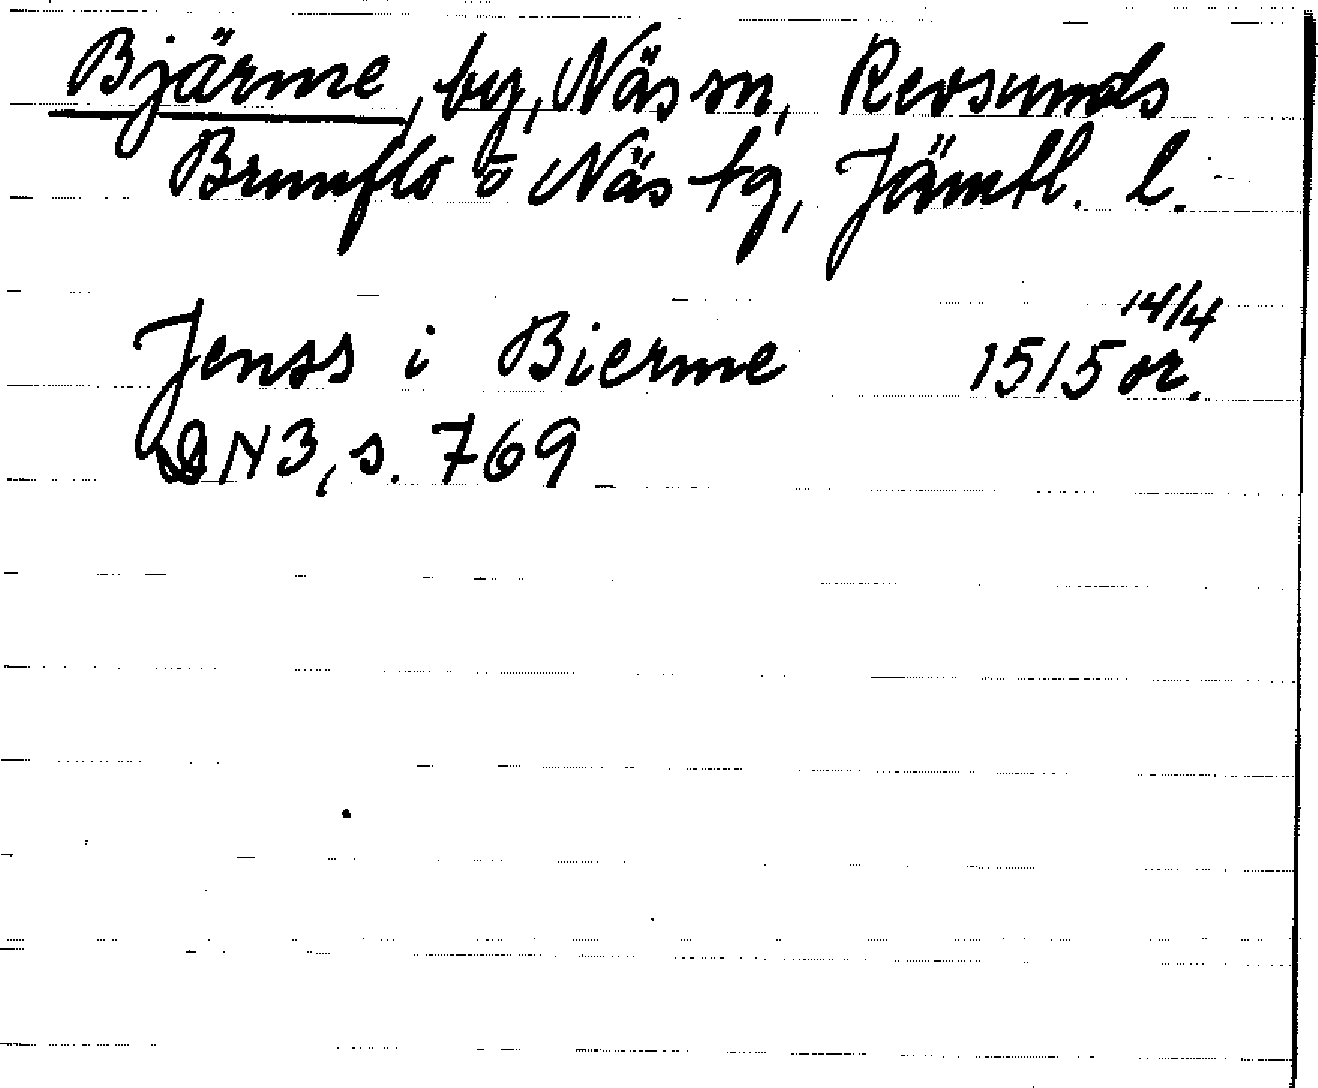 Bjärme, by, Näs sn, Revsunds
Brunflo o Näs tg, Jämtl. l.
14/4
Jenss i Bierme 1515 or.
DN 3, s. 769